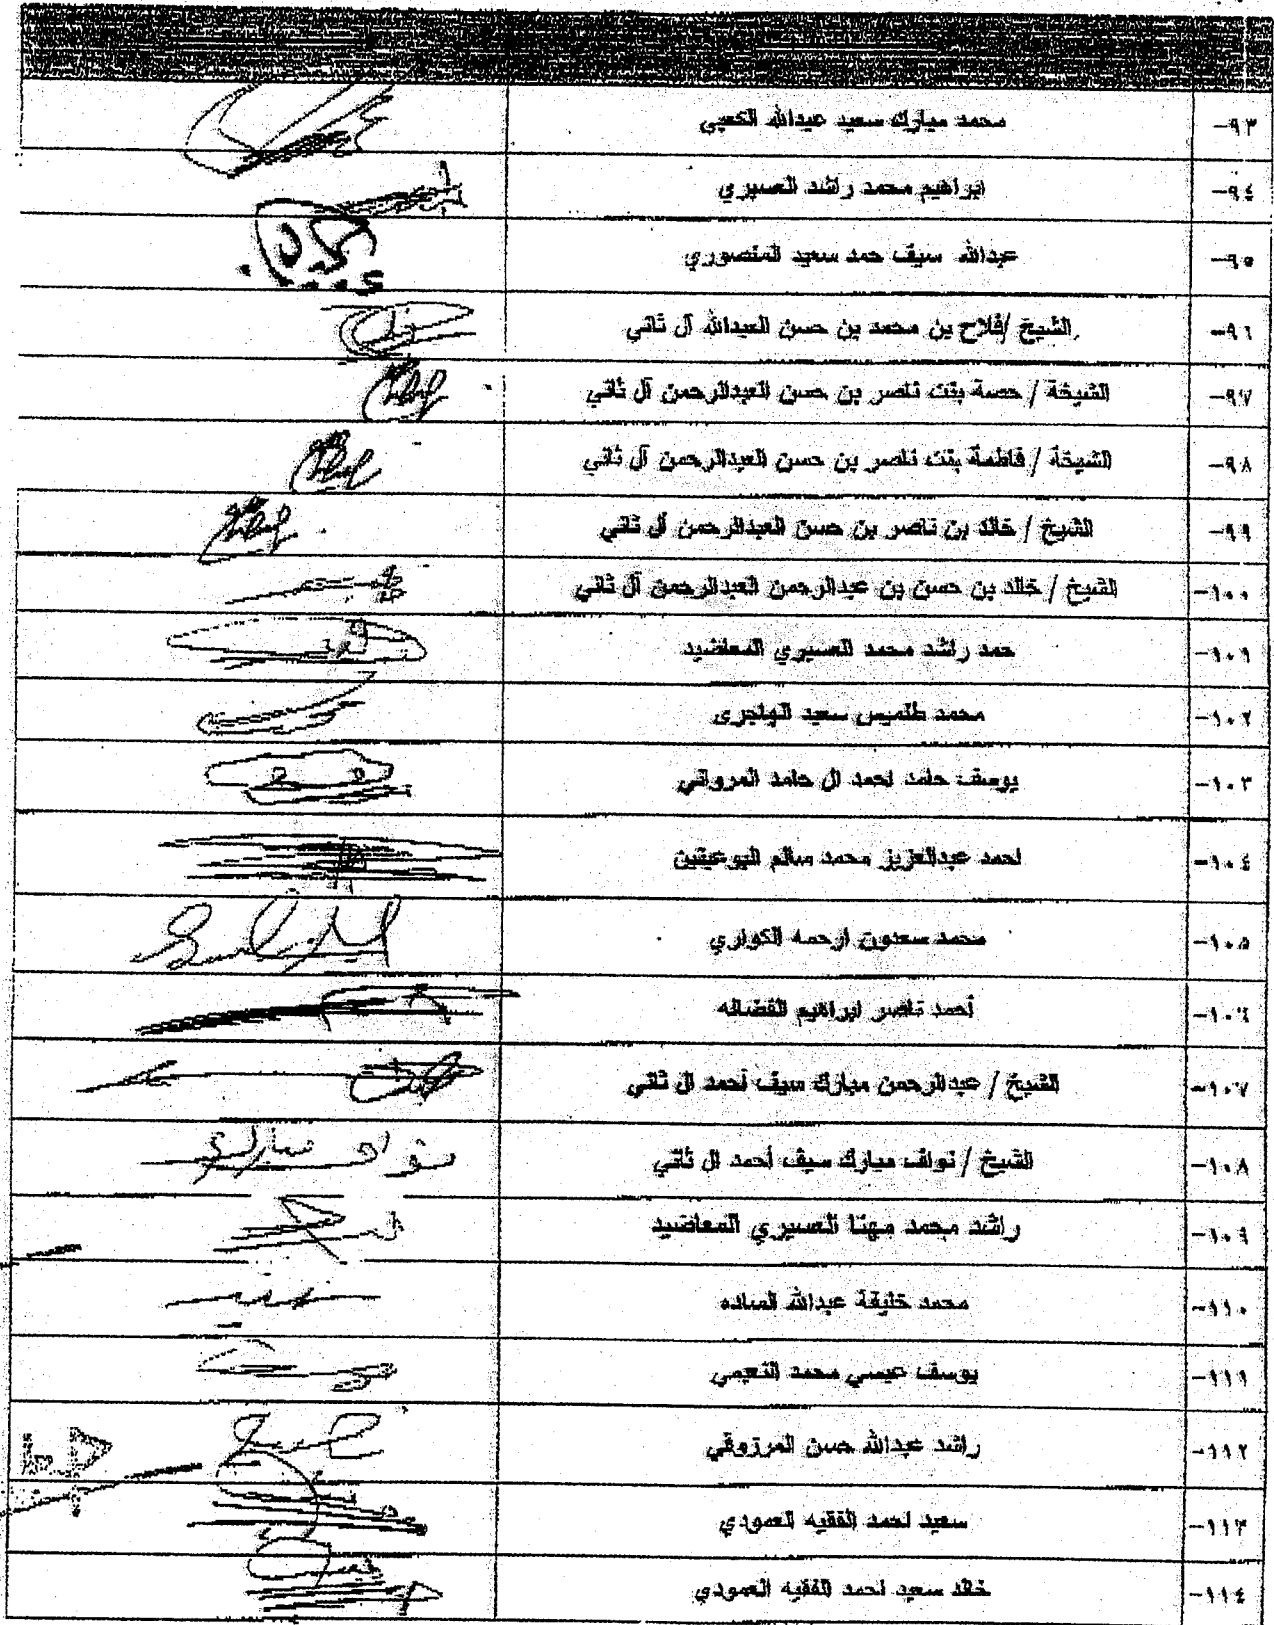 ٩٣- محمد مبارك سعيد عبدالله الكعبي
٩٤- ابراهيم محمد راشد العسيري
٩٥- عبدالله سيف حمد سعيد المنصوري
٩٦- الشيخ /فلاح بن محمد بن حسن العبدالله آل ثاني
٩٧- الشيخة / حصة بنت ناصر بن حسن العبدالرحمن آل ثاني
٩٨- الشيخة / فاطمة بنت ناصر بن حسن العبدالرحمن آل ثاني
٩٩- الشيخ / خالد بن ناصر بن حسن العبدالرحمن آل ثاني
١٠٠- الشيخ / خالد بن حسن بن عبدالرحمن العبدالرحمن آل ثاني
١٠١- حمد راشد محمد العسيري المعاضيد
١٠٢- محمد طلميس سعيد الهاجرى
١٠٣- يوسف حامد احمد ال حامد المرواني
١٠٤- احمد عبدالعزيز محمد سالم البوعينين
١٠٥- محمد سعدون ارحمه الكواري
١٠٦- أحمد ناصر ابراهيم الفضاله
١٠٧- الشيخ / عبدالرحمن مبارك سيف أحمد ال ثاني
١٠٨- الشيخ / نواف مبارك سيف أحمد ال ثاني
١٠٩- راشد محمد مهنا العسيري المعاضيد
١١٠- محمد خليفة عبدالله الساده
١١١- يوسف عيسي محمد النعيمي
١١٢- راشد عبدالله حسن المرزوقي
١١٣- سعيد احمد الفقيه العمودي
١١٤- خالد سعيد احمد الفقيه العمودي